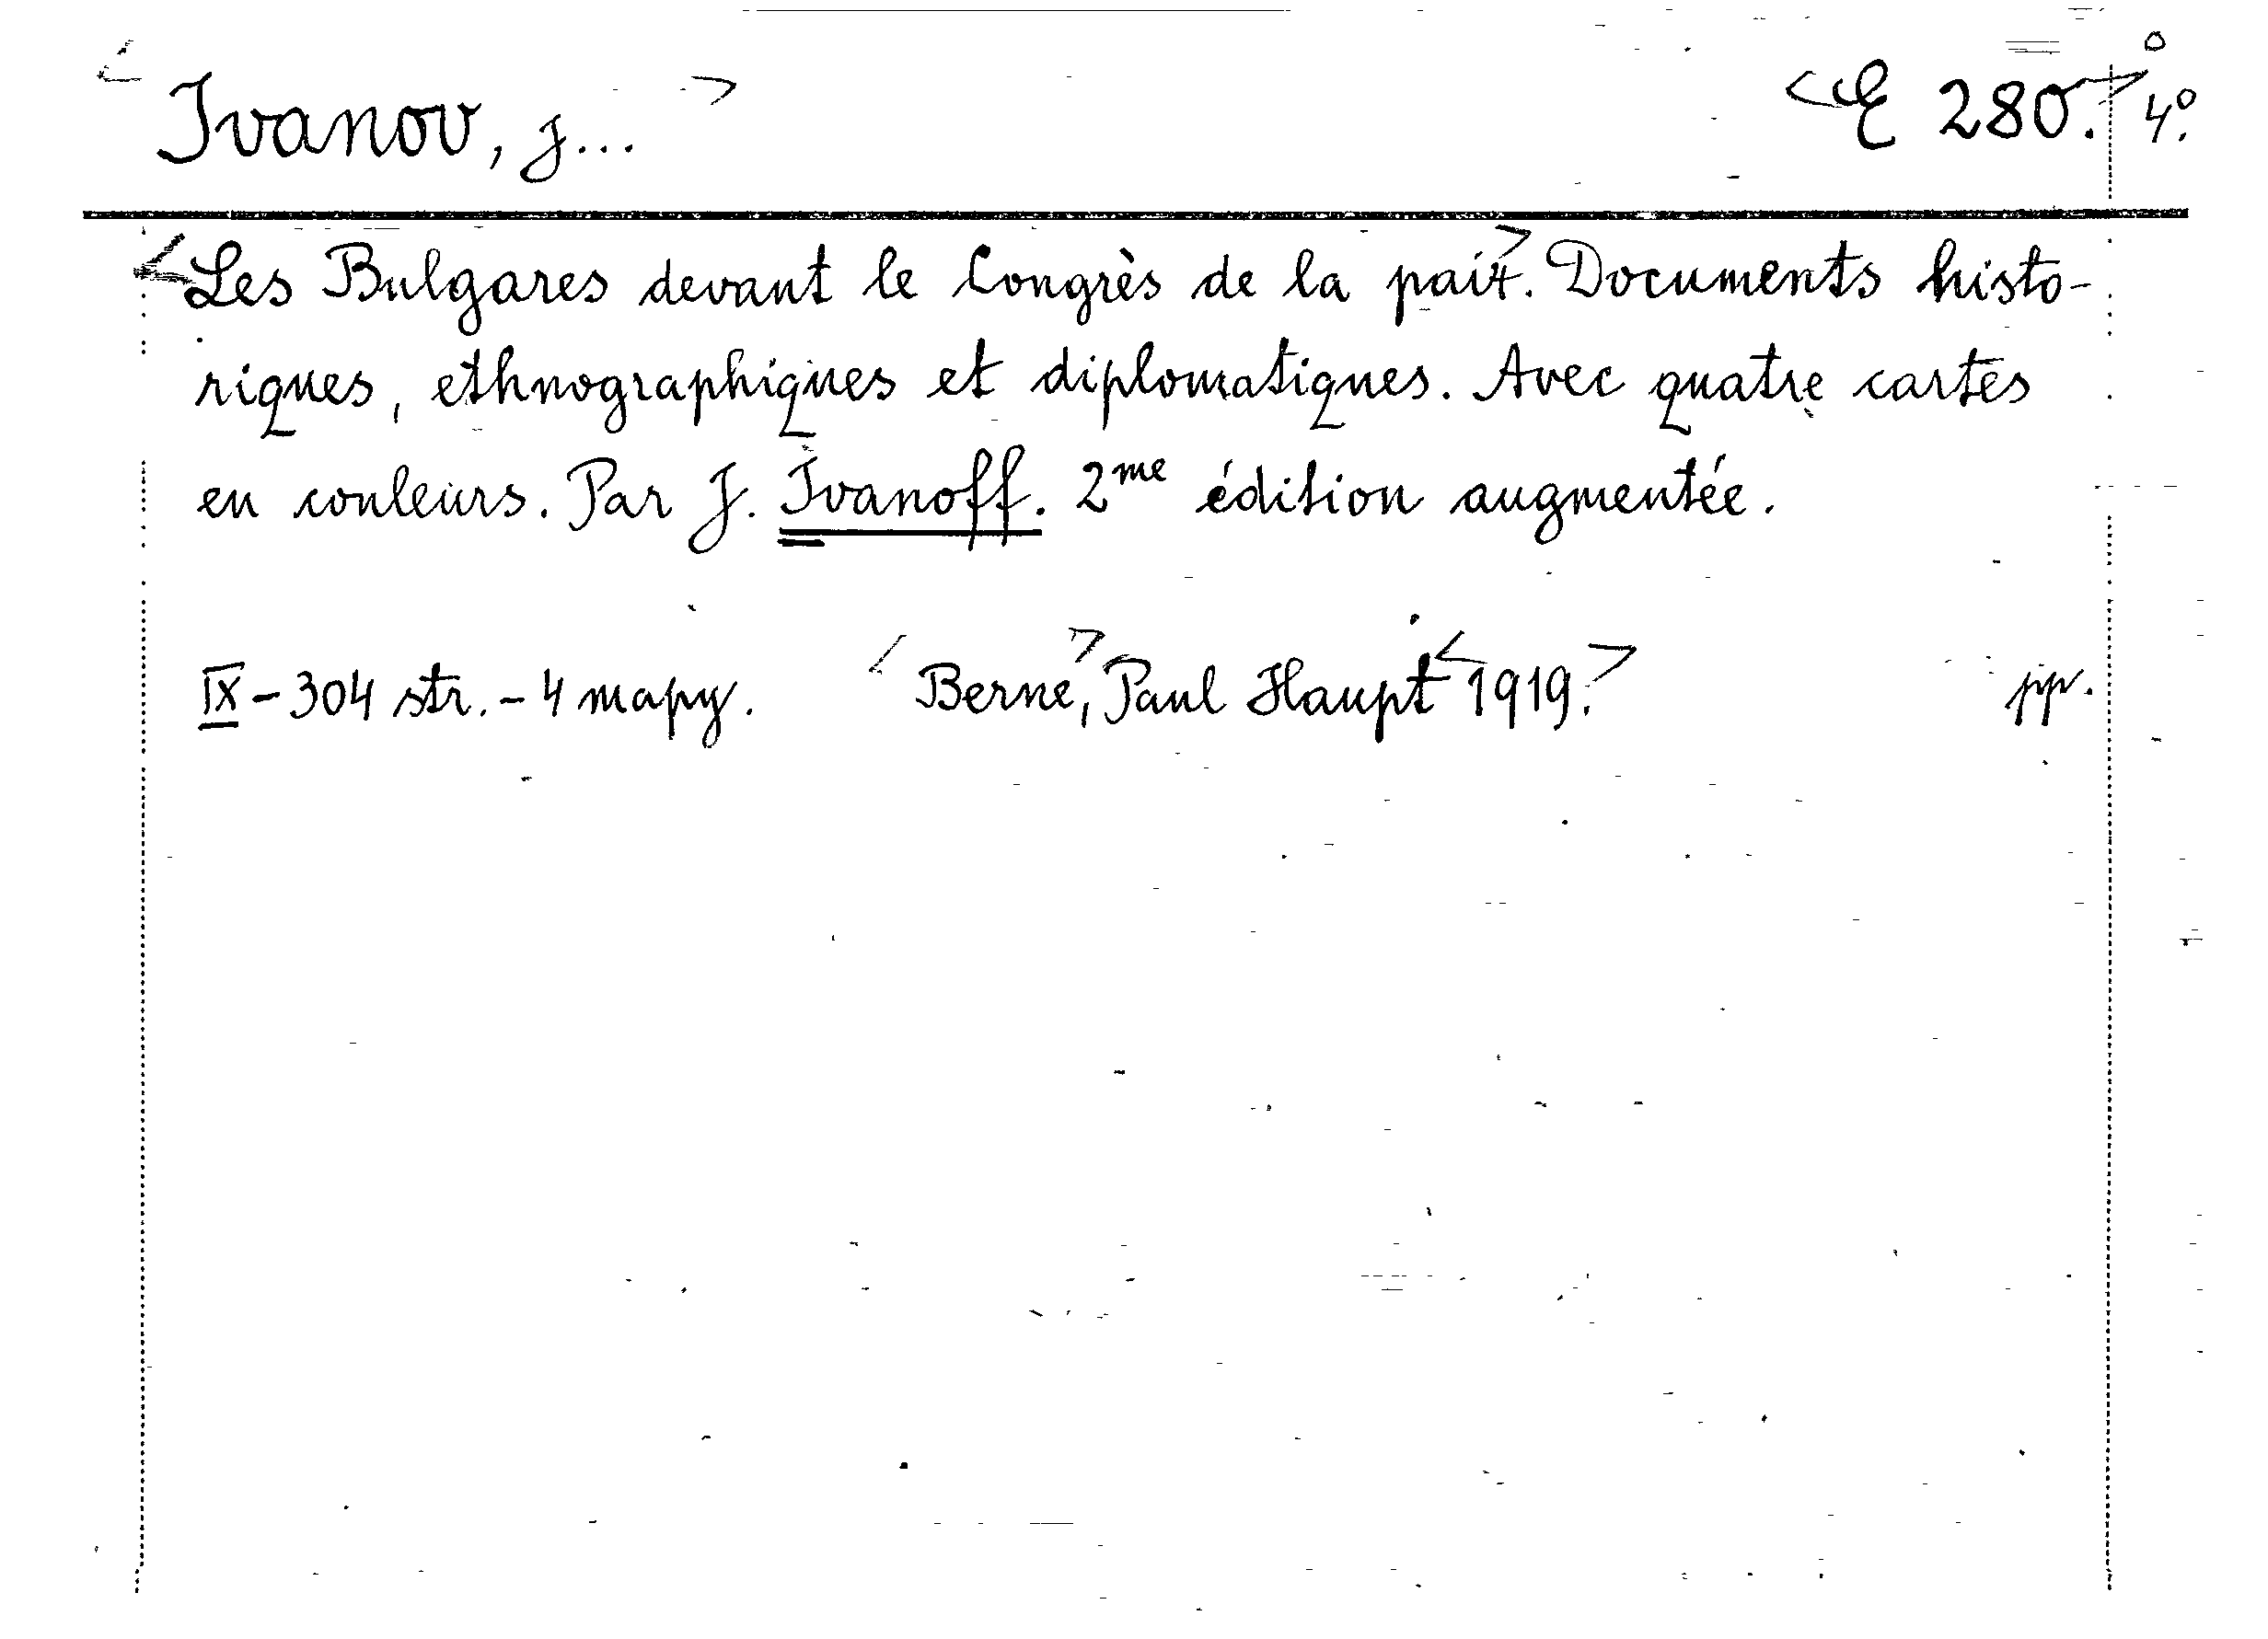 Ivanov, J... E 280. 4º.
Les Bulgares devant le Congrès de la paix. Documents histo-
riques, ethnographiques et diplomatiques. Avec quatre cartes
en couleurs. Par J. Ivanoff. 2me édition augmentée.
IX - 304 str. - 4 mapy. Berne, Paul Haupt 1919. pp.